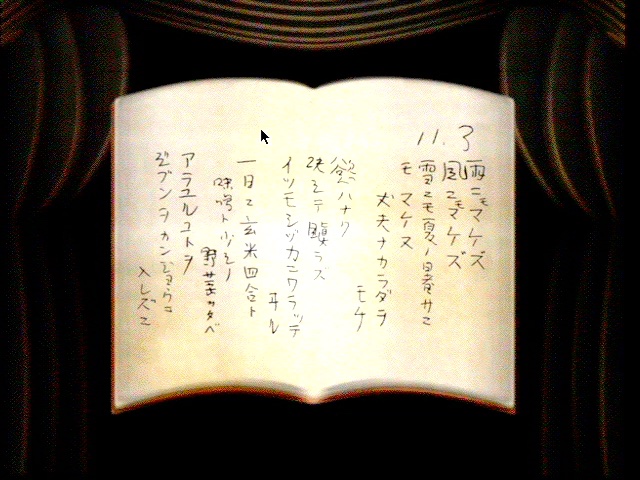 11.3
雨ニモマケズ
風ニモマケズ
雪ニモ夏ノ暑サニ
モマケヌ
丈夫ナカラダヲ
モチ
慾ハナク
決シテ瞋ラズ
イツモシヅカニワラッテ
ヰル
一日ニ玄米四合ト
味噌ト少シノ
野菜ヲタベ
アラユルコトヲ
ジブンヲカンジョウニ
入レズニ